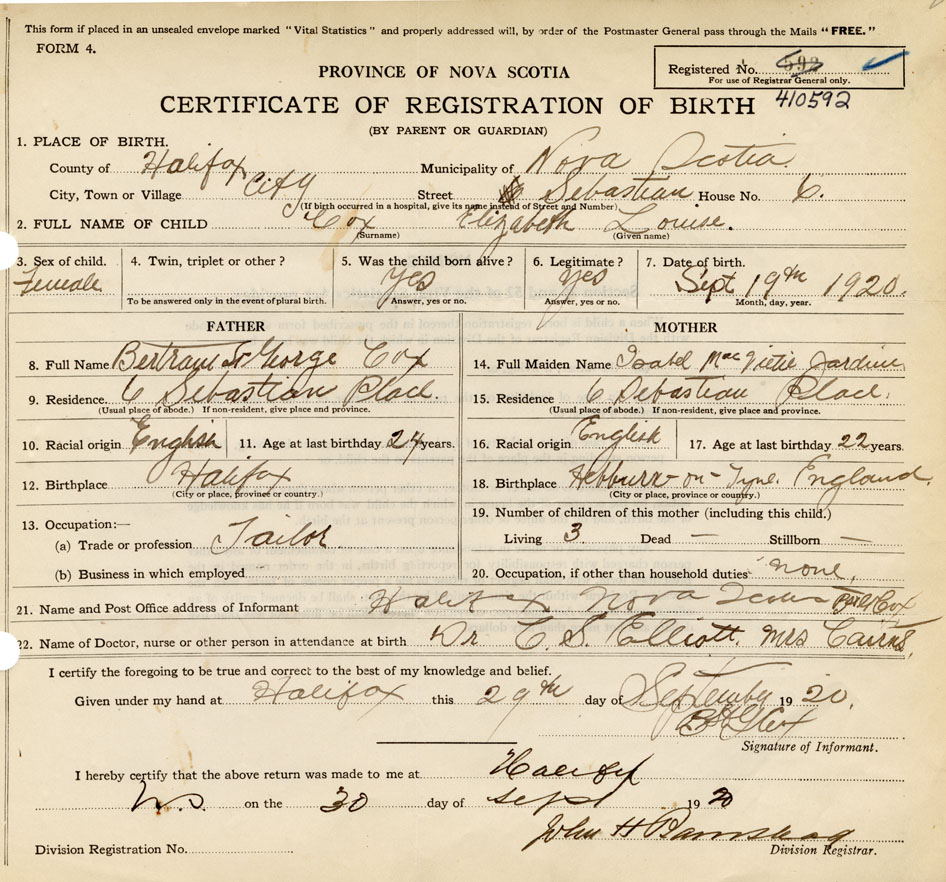 This form if placed in an unsealed envelope marked "Vital Statistics" and properly addressed will, by order of the Postmaster General pass through the Mails "FREE."
FORM 4.
Registered No. 592
For use of Registrar General only.
PROVINCE OF NOVA SCOTIA
CERTIFICATE OF REGISTRATION OF BIRTH 410592
(BY PARENT OR GUARDIAN)
1. PLACE OF BIRTH.
County of Halifax Municipality of Nova Scotia.
City, Town or Village City Street Sebastian House No. 6.
(If birth occurred in a hospital, give its name instead of Street and Number)
2. FULL NAME OF CHILD Cox Elizabeth Louise.
(Surname) (Given name)
3. Sex of child. 4. Twin, triplet or other? 5. Was the child born alive? 6. Legitimate? 7. Date of birth.
Female Yes Yes Sept 19th 1920.
To be answered only in the event of plural birth. Answer, yes or no. Answer, yes or no. Month, day, year.
FATHER
8. Full Name Bertram St George Cox
9. Residence. 6 Sebastian Place.
(Usual place of abode.) If non-resident, give place and province.
10. Racial origin English 11. Age at last birthday 24 years.
12. Birthplace Halifax
(City or place, province or country.)
13. Occupation:—
(a) Trade or profession Tailor
(b) Business in which employed
MOTHER
14. Full Maiden Name Isabel Mac Jardine
15. Residence 6 Sebastian Place.
(Usual place of abode.) If non-resident, give place and province.
16. Racial origin English 17. Age at last birthday 22 years.
18. Birthplace Hebburn-on-Tyne. England.
(City or place, province or country.)
19. Number of children of this mother (including this child.)
Living 3 Dead — Stillborn —
20. Occupation, if other than household duties none.
21. Name and Post Office address of Informant Halifax Nova Scotia Cox
22. Name of Doctor, nurse or other person in attendance at birth Dr C. S. Elliott. Mrs Cairns.
I certify the foregoing to be true and correct to the best of my knowledge and belief.
Given under my hand at Halifax this 29th day of September 1920.
B St G Cox
Signature of Informant.
I hereby certify that the above return was made to me at Halifax
N.S. on the 30 day of Sept 1920
John H
Division Registration No. Division Registrar.